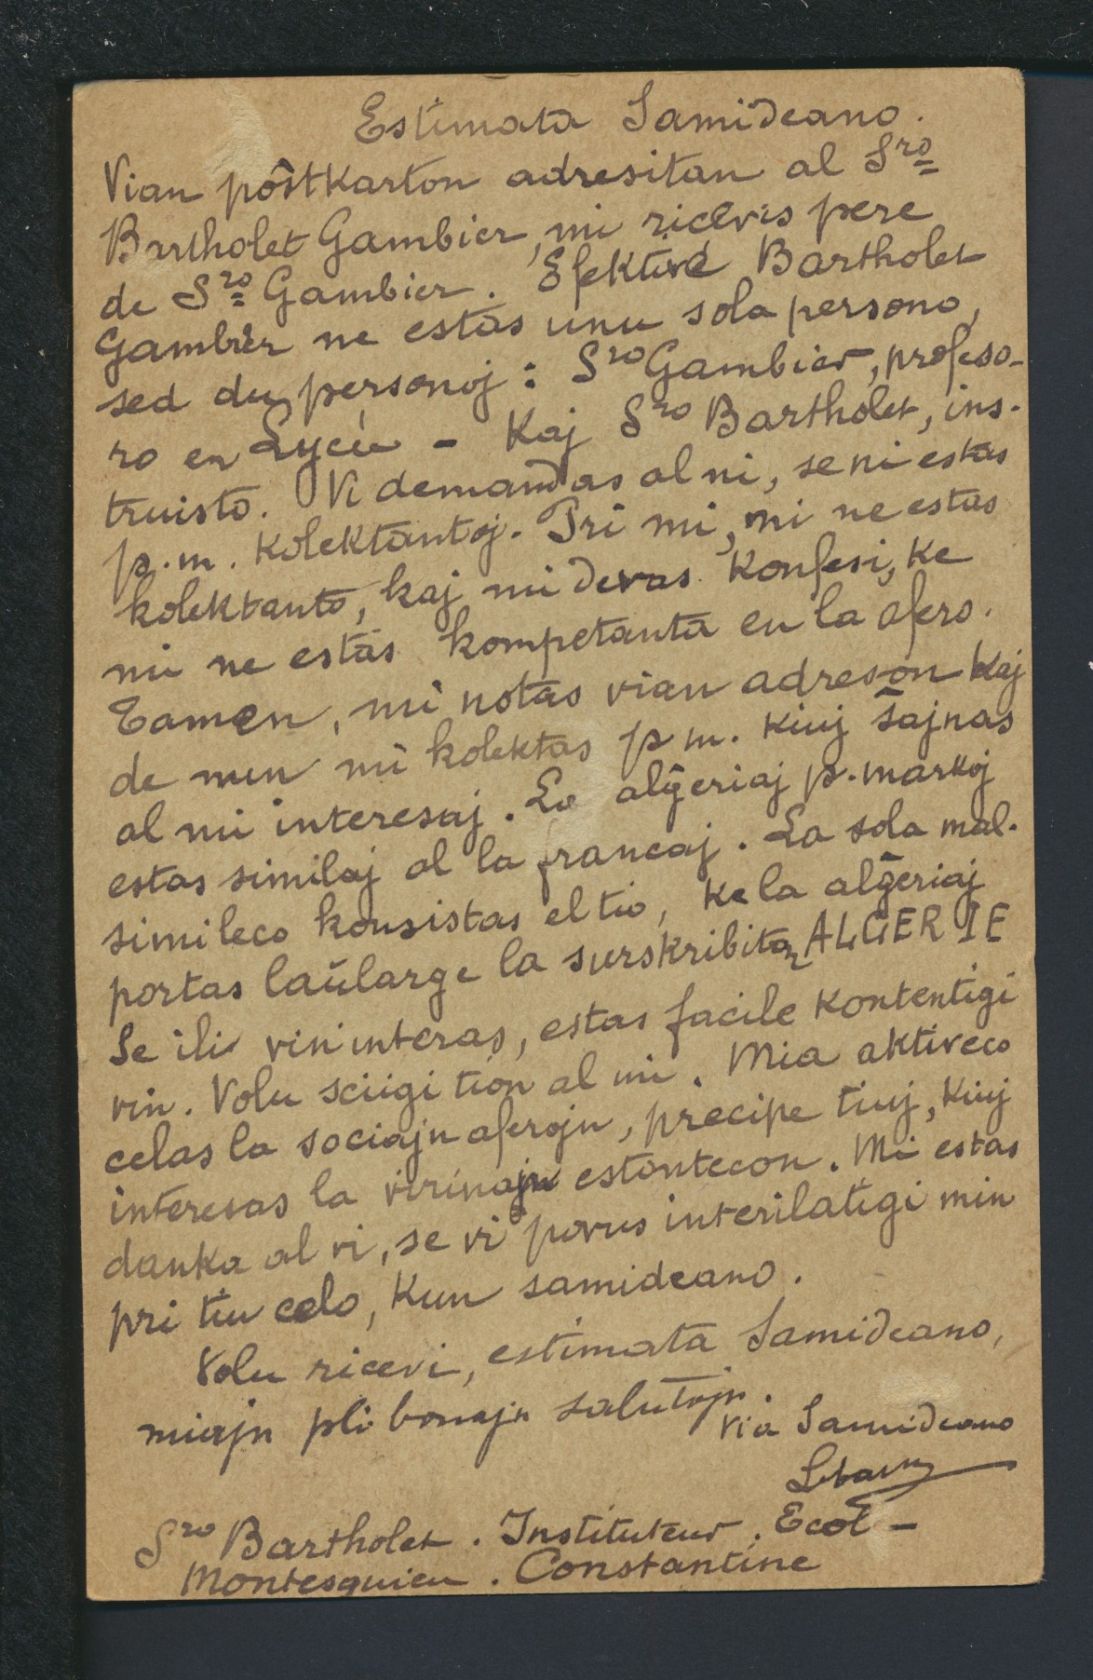 Estimata Samideano.
Vian pôstkarton adresitan al Sro
Bartholet Gambier, mi ricevis pere
de Sro Gambier. Efektive Bartholet
Gambier ne estas unu sola persono,
sed du personoj : Sro Gambier, profeso-
ro en Lycée - Kaj Sro Bartholet, ins-
truisto. Vi demandas al ni, se ni estas
p.m. kolektantoj. Pri mi, mi ne estas
kolektanto, kaj mi devas konfesi, ke
mi ne estas kompetanta en la afero.
Tamen, mi notas vian adreson kaj
de nun mi kolektas p m. kiuj ŝajnas
al mi interesaj. La alĝeriaj p.markoj
estas similaj al la francaj. La sola mal-
simileco konsistas el tio, ke la alĝeriaj
portas laŭlarge la surskribitan ALGERIE
Se ili vin interas, estas facile kontentigi
vin. Volu sciigi tion al mi. Mia aktiveco
celas la sociajn aferojn, precipe tiuj, kiuj
interesas la virinajn estontecon. Mi estas
danka al vi, se vi povus interilatigi min
pri tiu celo, kun samideano.
Volu ricevi, estimata Samideano,
miajn pli bonajn salutojn.
Via Samideano
Sro Bartholet. Instituteur. Ecol-
Montesquieu. Constantine